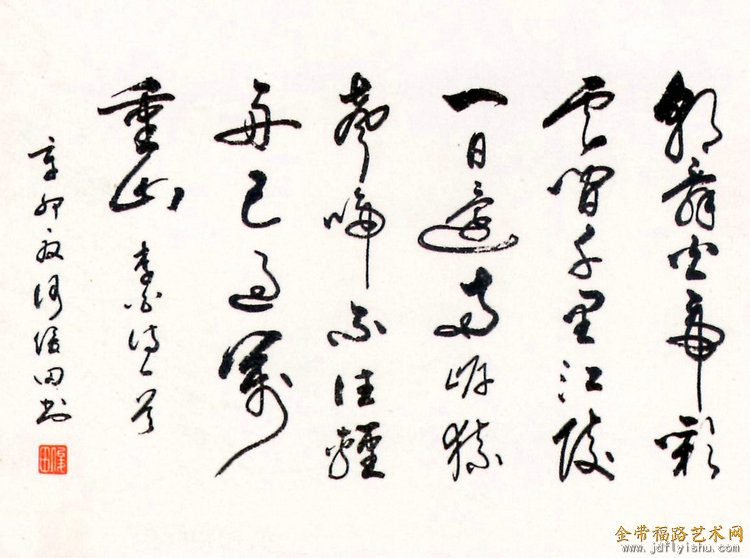 朝辞白帝彩
雲間千里江陵
一日還两岸猿
聲啼不住輕
舟已過萬
重山 李白诗一首
辛卯 田书
金带福路艺术网
www.jdflyishu.com